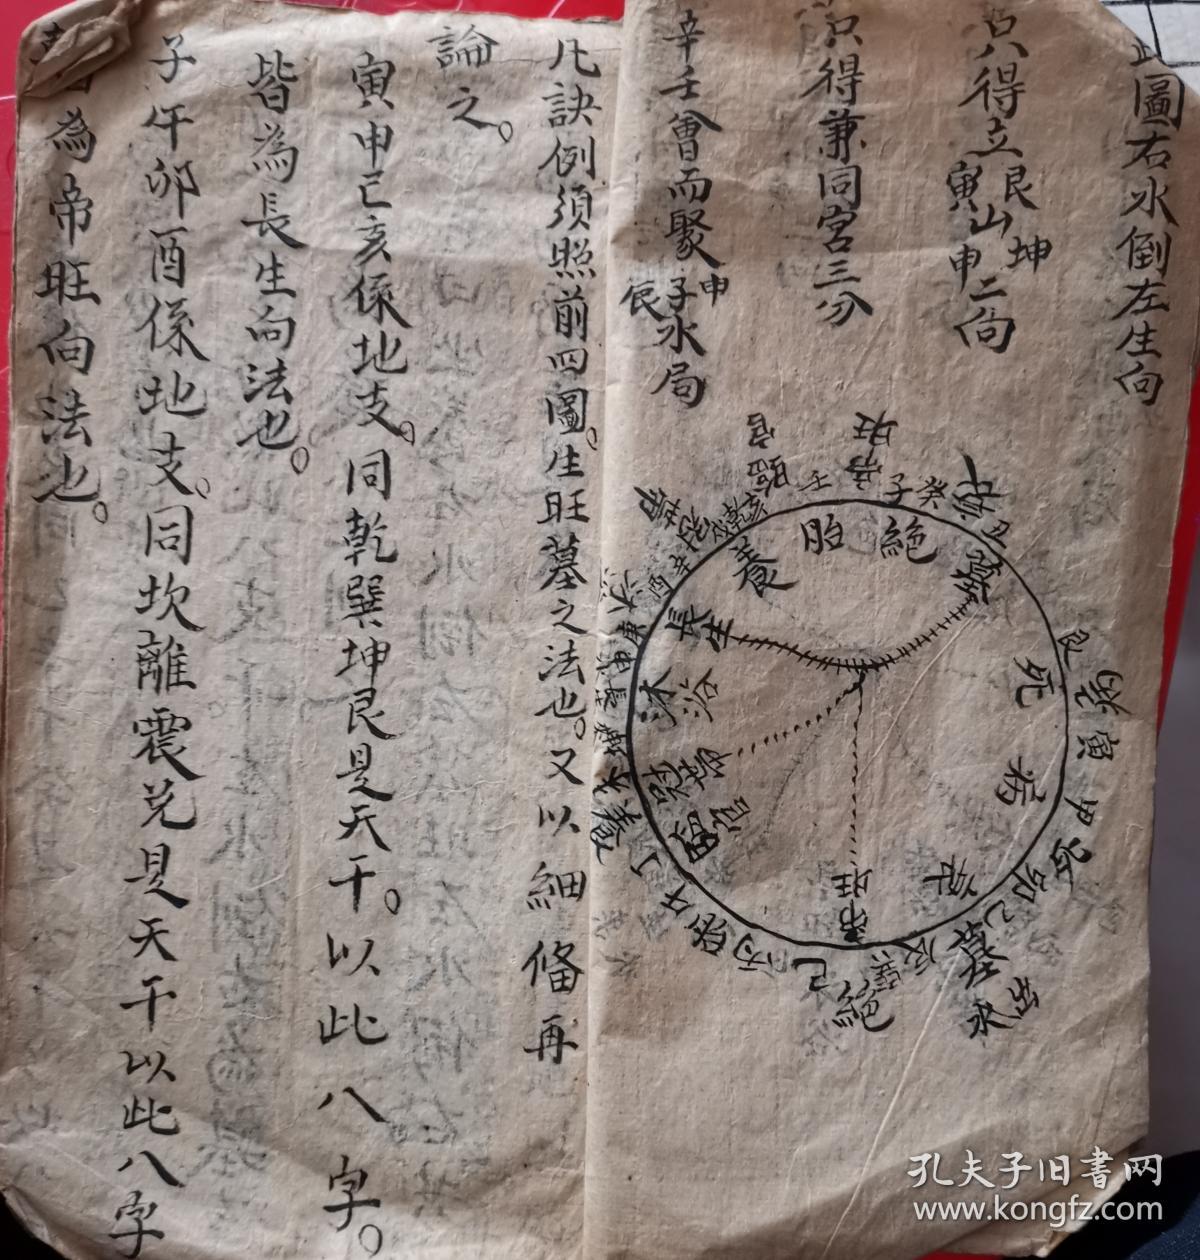 此圖右水倒左生向
只得立艮寅山坤申二向
只得兼同宮三分
辛壬會而聚申子辰水局
凡訣例須照前四圖生旺墓之法也。又以細俻再
論之。
寅申巳亥係地支。同乾巽坤艮是天干。以此八字。
皆為長生向法也。
子午卯酉係地支。同坎離震兌是天干以此八字
皆為帝旺向法也。
絕
胎
養
長生
沐浴
冠帶
臨官
帝旺
病
死
墓
帝旺
臨官
子癸
丑
艮
寅
甲
卯
乙
辰
巽
巳
丙
午
丁
墓
絕
養
孔夫子旧書网
www.kongfz.com